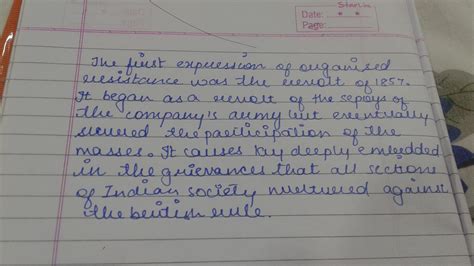 Starlin
Date:
Page:
The first expression of organised
resistance was the revolt of 1857.
It began as a revolt of the sepoys of
the company's army but eventually
secured the participation of the
masses. It causes lay deeply embedded
in the grievances that all sections
of Indian society nurtured against
the british rule.